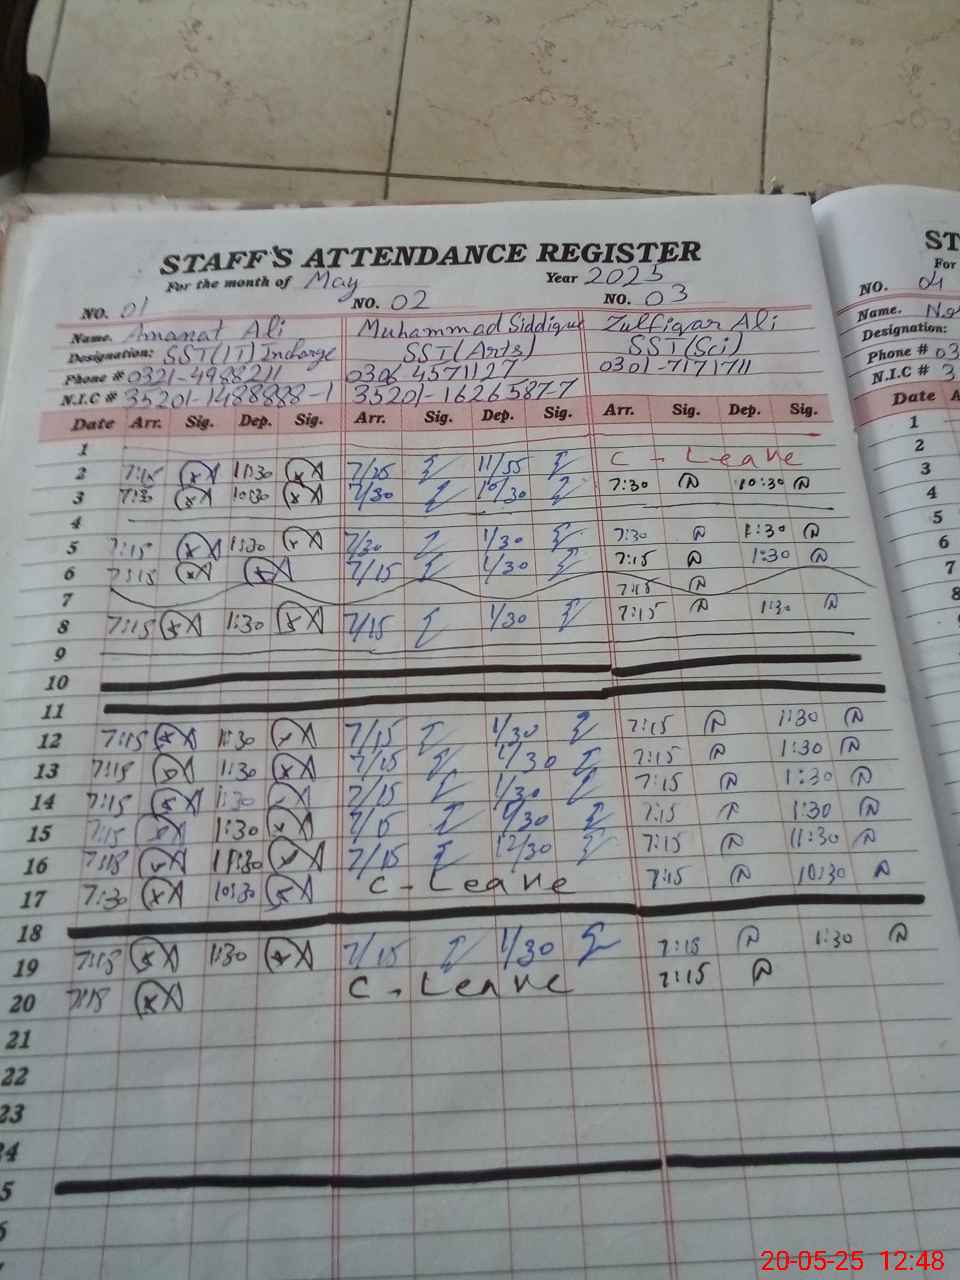 STAFF'S ATTENDANCE REGISTER ST
For the month of May Year 2025 For
NO. 01 NO. 02 NO. 03 NO. 04
Name. Amanat Ali Muhammad Siddique Zulfiqar Ali Name.
Designation: SST(IT) Incharge SST(Arts) SST(Sci) Designation:
Phone # 0321-4988211 0306 4571127 0301-7171711 Phone # 03
N.I.C # 35201-1488888-1 35201-1626587-7 N.I.C # 3
Date Arr. Sig. Dep. Sig. Arr. Sig. Dep. Sig. Arr. Sig. Dep. Sig. Date A
1 1
2 7:15 11:30 11/55 C - Leave 2
3 7:30 10:30 7/30 10/30 7:30 10:30 3
4 4
5 7:15 1:30 7/30 1/30 7:30 1:30 5
6 7:15 7/15 1/30 7:15 1:30 6
7 7:15 7
8 7:15 1:30 7/15 1/30 7:15 1:30 8
9 9
10
11
12 7:15 1:30 7/15 1/30 7:15 1:30
13 7:15 1:30 7/15 1/30 7:15 1:30
14 7:15 1:30 7/15 1/30 7:15 1:30
15 7:15 1:30 7/15 1/30 7:15 1:30
16 11:30 7/15 12/30 7:15 11:30
17 7:30 10:30 C - Leave 7:15 10:30
18
19 7:15 1:30 7/15 1/30 7:15 1:30
20 C - Leave 7:15
21
22
23
24
5
20-05-25 12:48